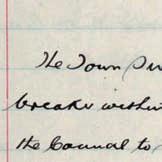 The Town
breaks within
the Council to